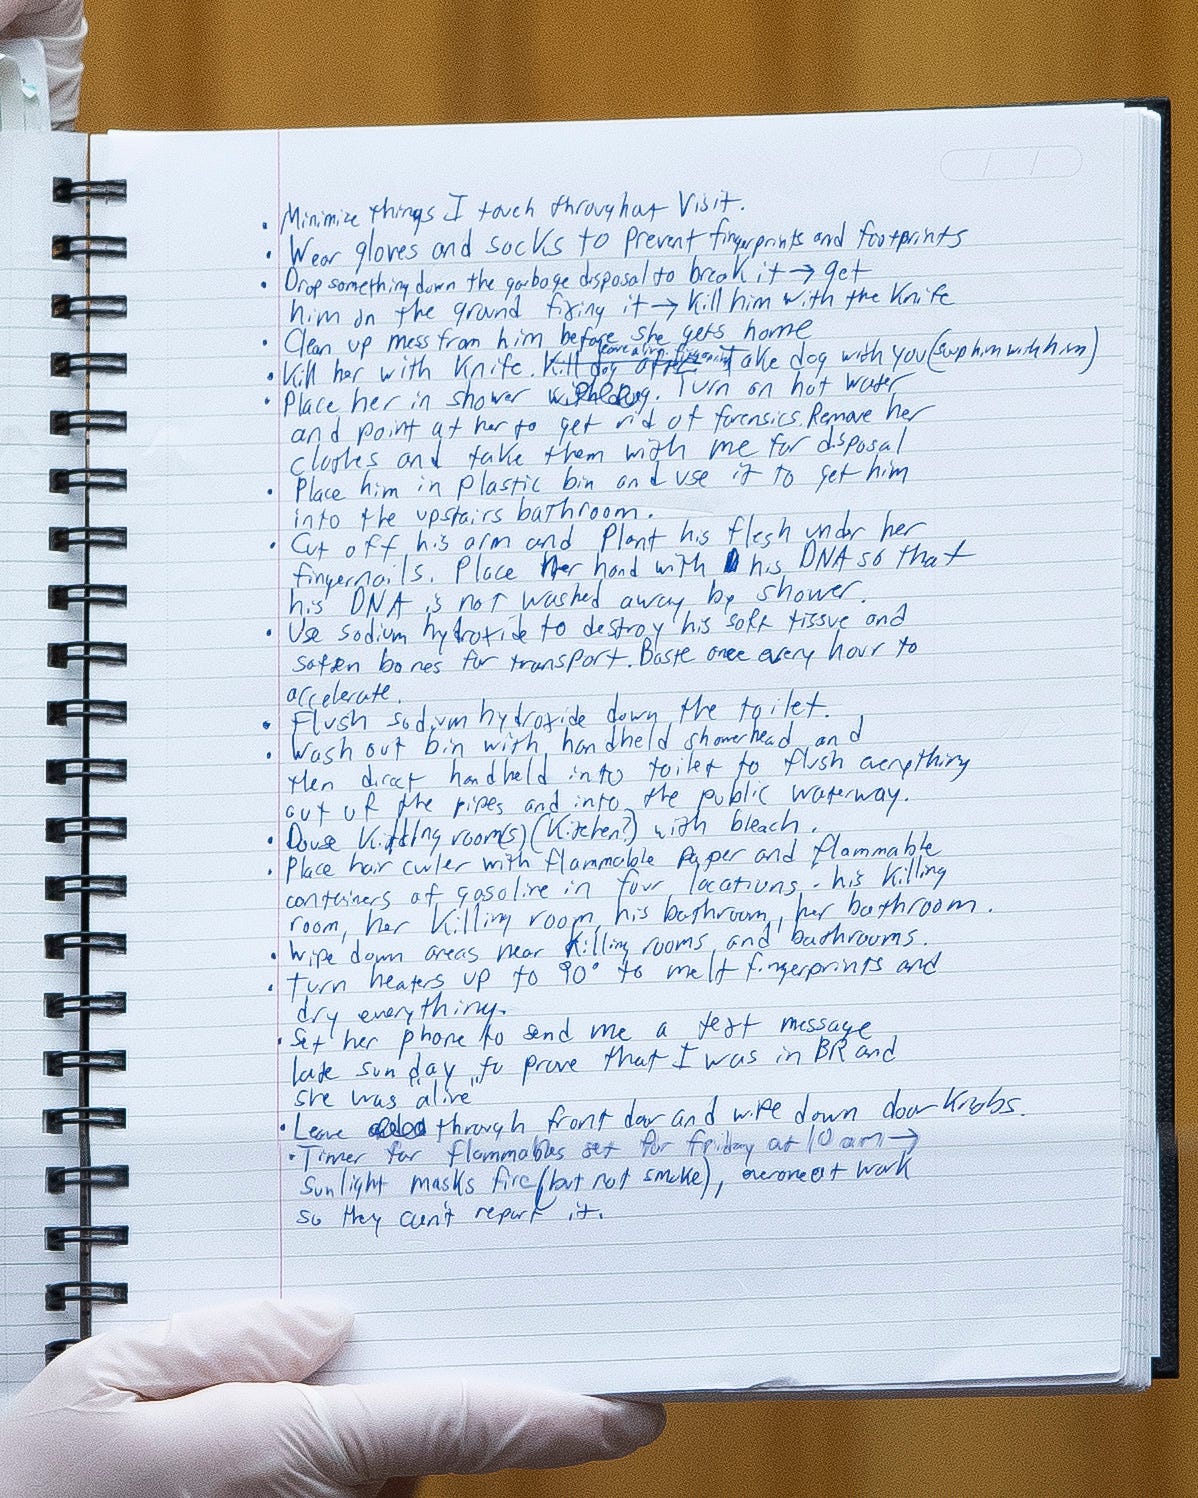 • Minimize things I touch throughout Visit.
• Wear gloves and socks to prevent fingerprints and footprints
• Drop something down the garbage disposal to break it → get
him on the ground fixing it → kill him with the knife
• Clean up mess from him before she gets home
• Kill her with knife. Kill dog after Take dog with you (swap him with him)
• Place her in shower with dog. Turn on hot water
and point at her to get rid of forensics. Remove her
clothes and take them with me for disposal
• Place him in plastic bin and use it to get him
into the upstairs bathroom.
• Cut off his arm and plant his flesh under her
fingernails. Place her hand with his DNA so that
his DNA is not washed away by shower.
• Use sodium hydroxide to destroy his soft tissue and
soften bones for transport. Baste once every hour to
accelerate.
• Flush sodium hydroxide down the toilet.
• Wash out bin with handheld showerhead and
then direct handheld into toilet to flush everything
out of the pipes and into the public waterway.
• Douse killing room(s) (kitchen?) with bleach.
• Place hair curler with flammable paper and flammable
containers of gasoline in four locations - his killing
room, her killing room, his bathroom, her bathroom.
• Wipe down areas near killing rooms and bathrooms.
• Turn heaters up to 90° to melt fingerprints and
dry everything.
• Set her phone to send me a text message
late sunday to prove that I was in BR and
she was "alive"
• Leave through front door and wipe down door knobs.
• Timer for flammables set for friday at 10 am →
sunlight masks fire (but not smoke), everone at work
so they can't report it.